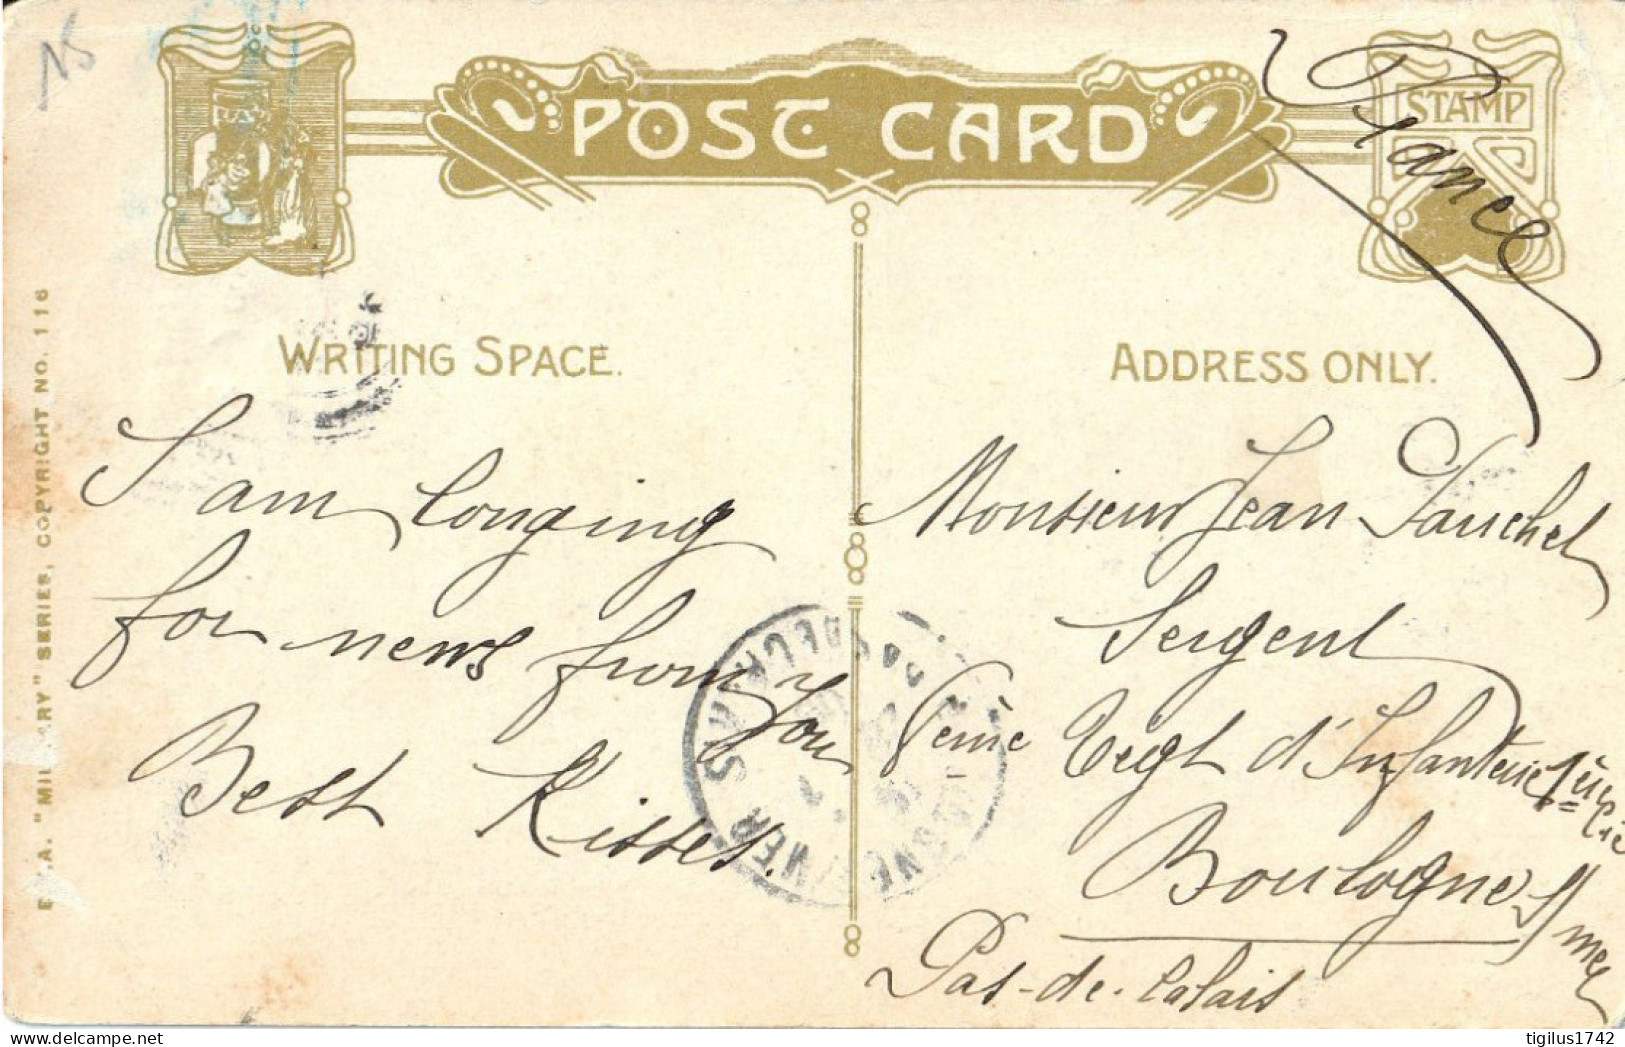 POST CARD
STAMP
France
WRITING SPACE.
ADDRESS ONLY.
"MILITARY" SERIES, COPYRIGHT NO. 116
I am longing
for news from you
Best Kisses.
Monsieur Jean Fauchel
Sergent
ème Regt d'Infanterie 1ère Cie
Boulogne s/mer
Pas-de-Calais
BOULOGNE
PAS DE CALAIS
tigilus1742